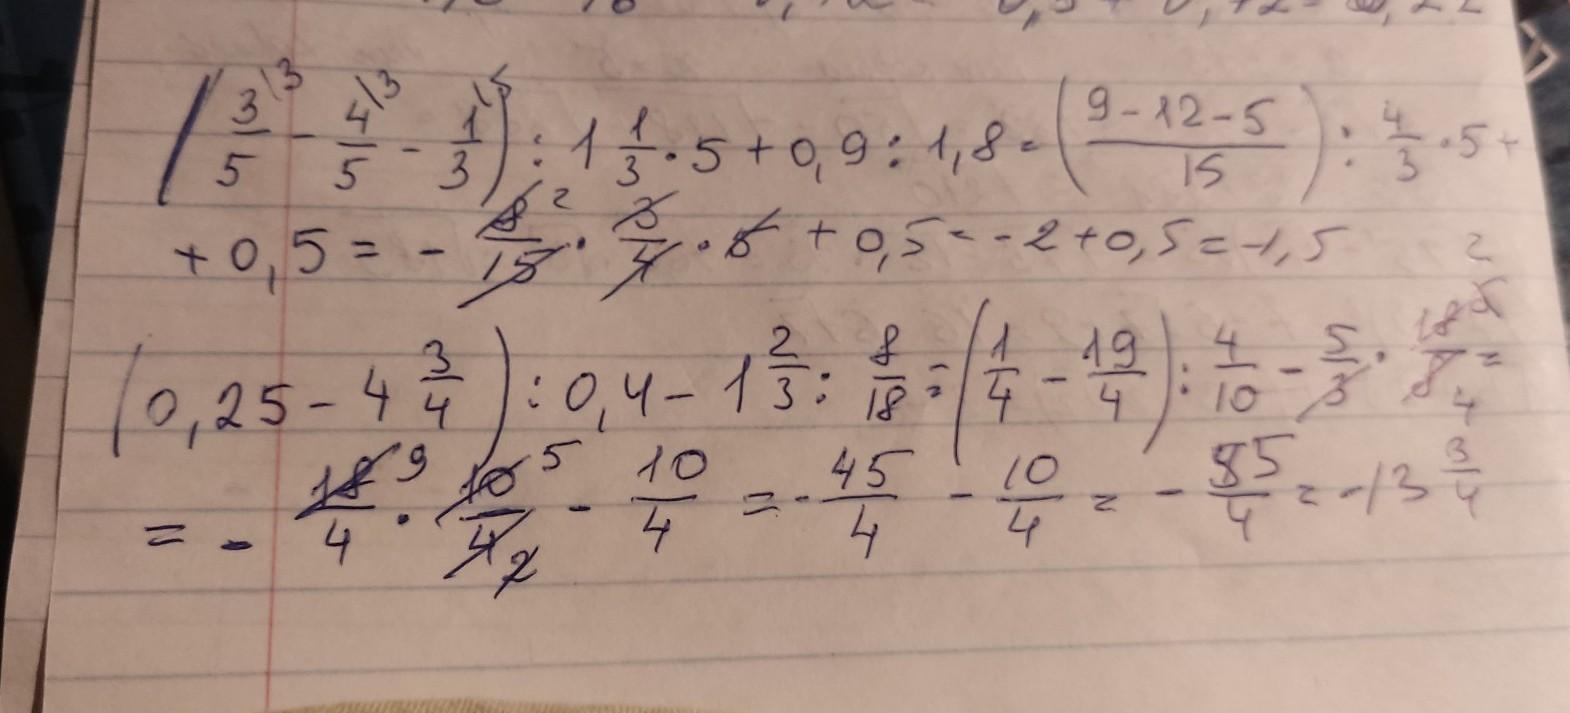 0,5 + 0,72 =
(3/5\3 - 4/5\3 - 1/3\5) : 1 1/3 · 5 + 0,9 : 1,8 = ((9 - 12 - 5)/15) : 4/3 · 5 +
+ 0,5 = - 8 2/15 · 3/4 · 5 + 0,5 = -2 + 0,5 = -1,5
(0,25 - 4 3/4) : 0,4 - 1 2/3 : 8/18 = (1/4 - 19/4) : 4/10 - 5/3 · 18/8 4 =
= - 18 9/4 · 10 5/4 2 - 10/4 = - 45/4 - 10/4 = - 55/4 = -13 3/4